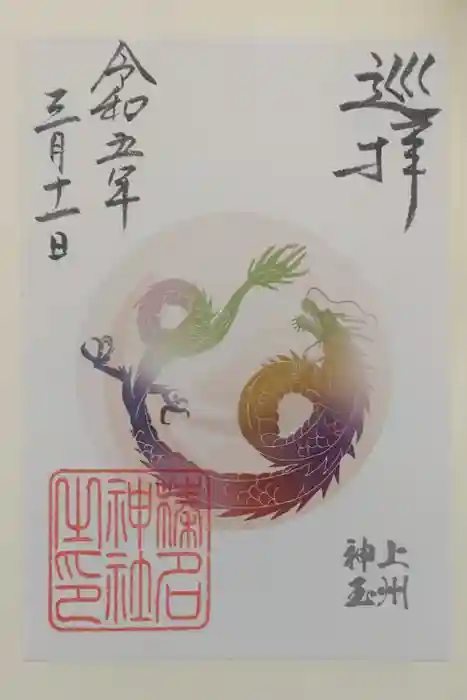 巡拝
令和五年
三月十一日
榛名
神社
之印
上州
神玉